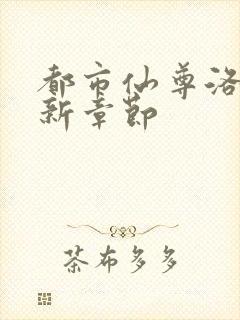 都市仙尊洛
新章节
茶布多多